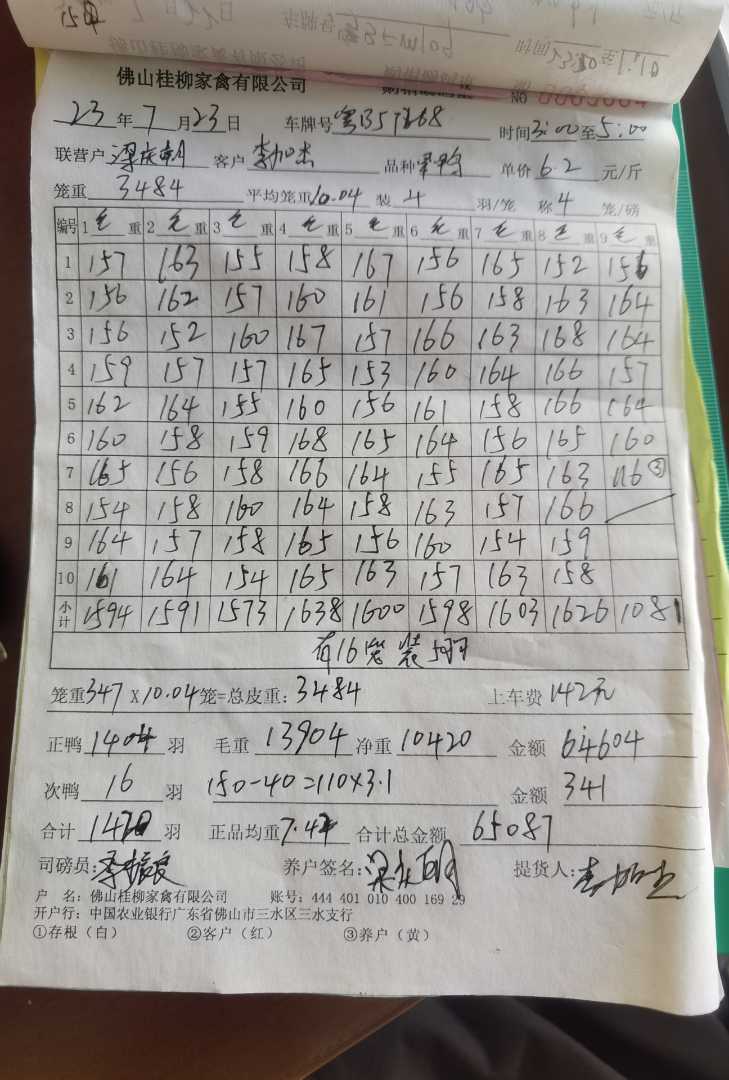 佛山桂柳家禽有限公司
NO
23年7月23日 车牌号 时间3:00至5:00
联营户 客户 品种 单价6.2元/斤
笼重3484 平均笼重10.04 装4羽/笼 称4笼/磅
编号 1毛重 2毛重 3毛重 4毛重 5毛重 6毛重 7毛重 8毛重 9毛重
1 157 163 155 158 167 156 165 152 156
2 156 162 157 160 161 156 158 163 164
3 156 152 160 167 157 166 163 168 164
4 159 157 157 165 153 160 164 166 157
5 162 164 155 160 156 161 158 166 164
6 160 158 159 168 165 164 156 165 160
7 165 156 158 166 164 155 165 163 116③
8 154 158 160 164 158 163 157 166
9 164 157 158 165 156 160 154 159
10 161 164 154 165 163 157 163 158
小计 1594 1591 1573 1638 1600 1598 1603 1626 1081
有16笼装5羽
笼重347X10.04笼=总皮重:3484 上车费142元
正鸭 羽 毛重13904净重10420 金额64604
次鸭16羽 150-40=110×3.1 金额341
合计 羽 正品均重7.42 合计总金额65087
司磅员: 养户签名: 提货人:
户 名:佛山桂柳家禽有限公司 账号:444 401 010 400 169 29
开户行:中国农业银行广东省佛山市三水区三水支行
①存根(白) ②客户(红) ③养户(黄)